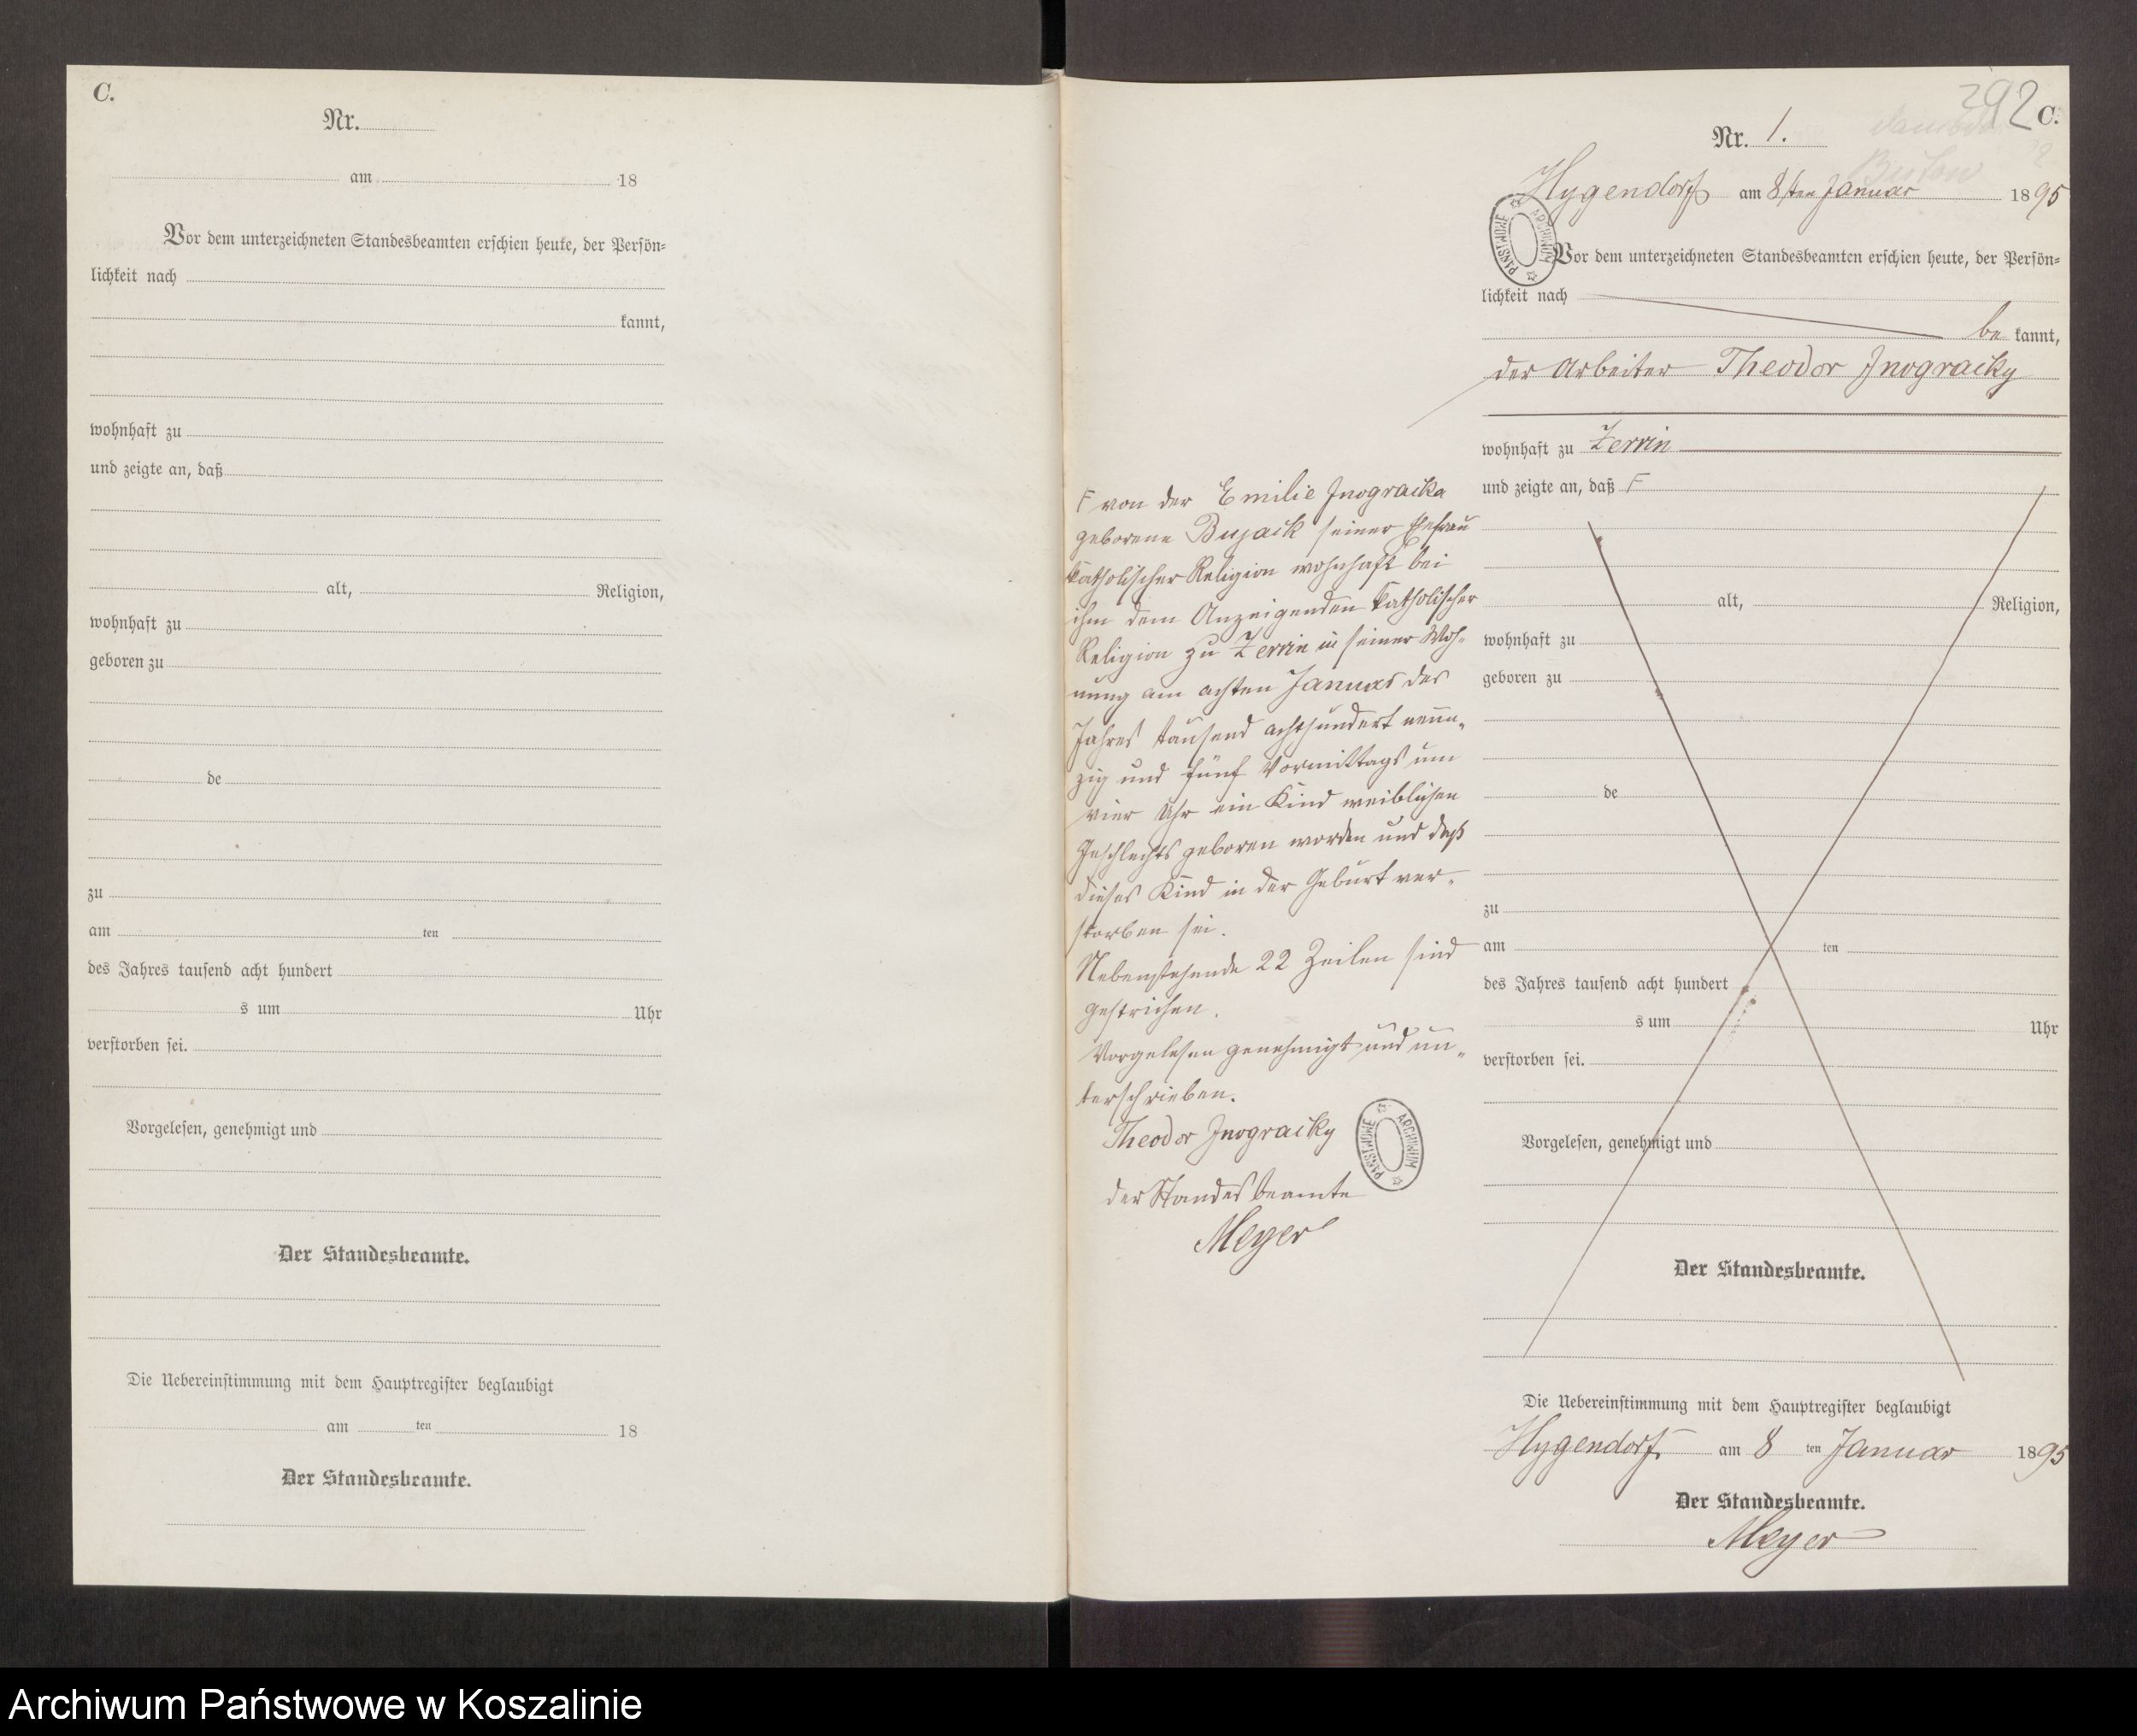 C.
Nr.
am 18
Vor dem unterzeichneten Standesbeamten erschien heute, der Persön=
lichkeit nach
kannt,
wohnhaft zu
und zeigte an, daß
alt, Religion,
wohnhaft zu
geboren zu
de
zu
am ten
des Jahres tausend acht hundert
s um Uhr
verstorben sei.
Vorgelesen, genehmigt und
Der Standesbeamte.
Die Uebereinstimmung mit dem Hauptregister beglaubigt
am ten 18
Der Standesbeamte.
F von der Emilie Jnogracka
geborene Bujack seiner Ehefrau
katholischer Religion wohnhaft bei
ihm dem Anzeigenden katholischer
Religion zu Zerrin in seiner Woh-
nung am achten Januar des
Jahres tausend achthundert neun-
zig und fünf Vormittags um
vier Uhr ein Kind weiblichen
Geschlechts geboren worden und daß
dieses Kind in der Geburt ver-
storben sei.
Nebenstehende 22 Zeilen sind
gestrichen.
Vorgelesen genehmigt und un-
terschrieben.
Theodor Jnogracky
der Standesbeamte
Meyer
ARCHIWUM PAŃSTWOWE
292 C.
Nr. 1.
Bütow
Hygendorf am 8ten Januar 1895
ARCHIWUM PAŃSTWOWE
Vor dem unterzeichneten Standesbeamten erschien heute, der Persön=
lichkeit nach
be kannt,
der Arbeiter Theodor Jnogracky
wohnhaft zu Zerrin
und zeigte an, daß F
alt, Religion,
wohnhaft zu
geboren zu
de
zu
am ten
des Jahres tausend acht hundert
s um Uhr
verstorben sei.
Vorgelesen, genehmigt und
Der Standesbeamte.
Die Uebereinstimmung mit dem Hauptregister beglaubigt
Hygendorf am 8 ten Januar 1895
Der Standesbeamte.
Meyer
Archiwum Państwowe w Koszalinie